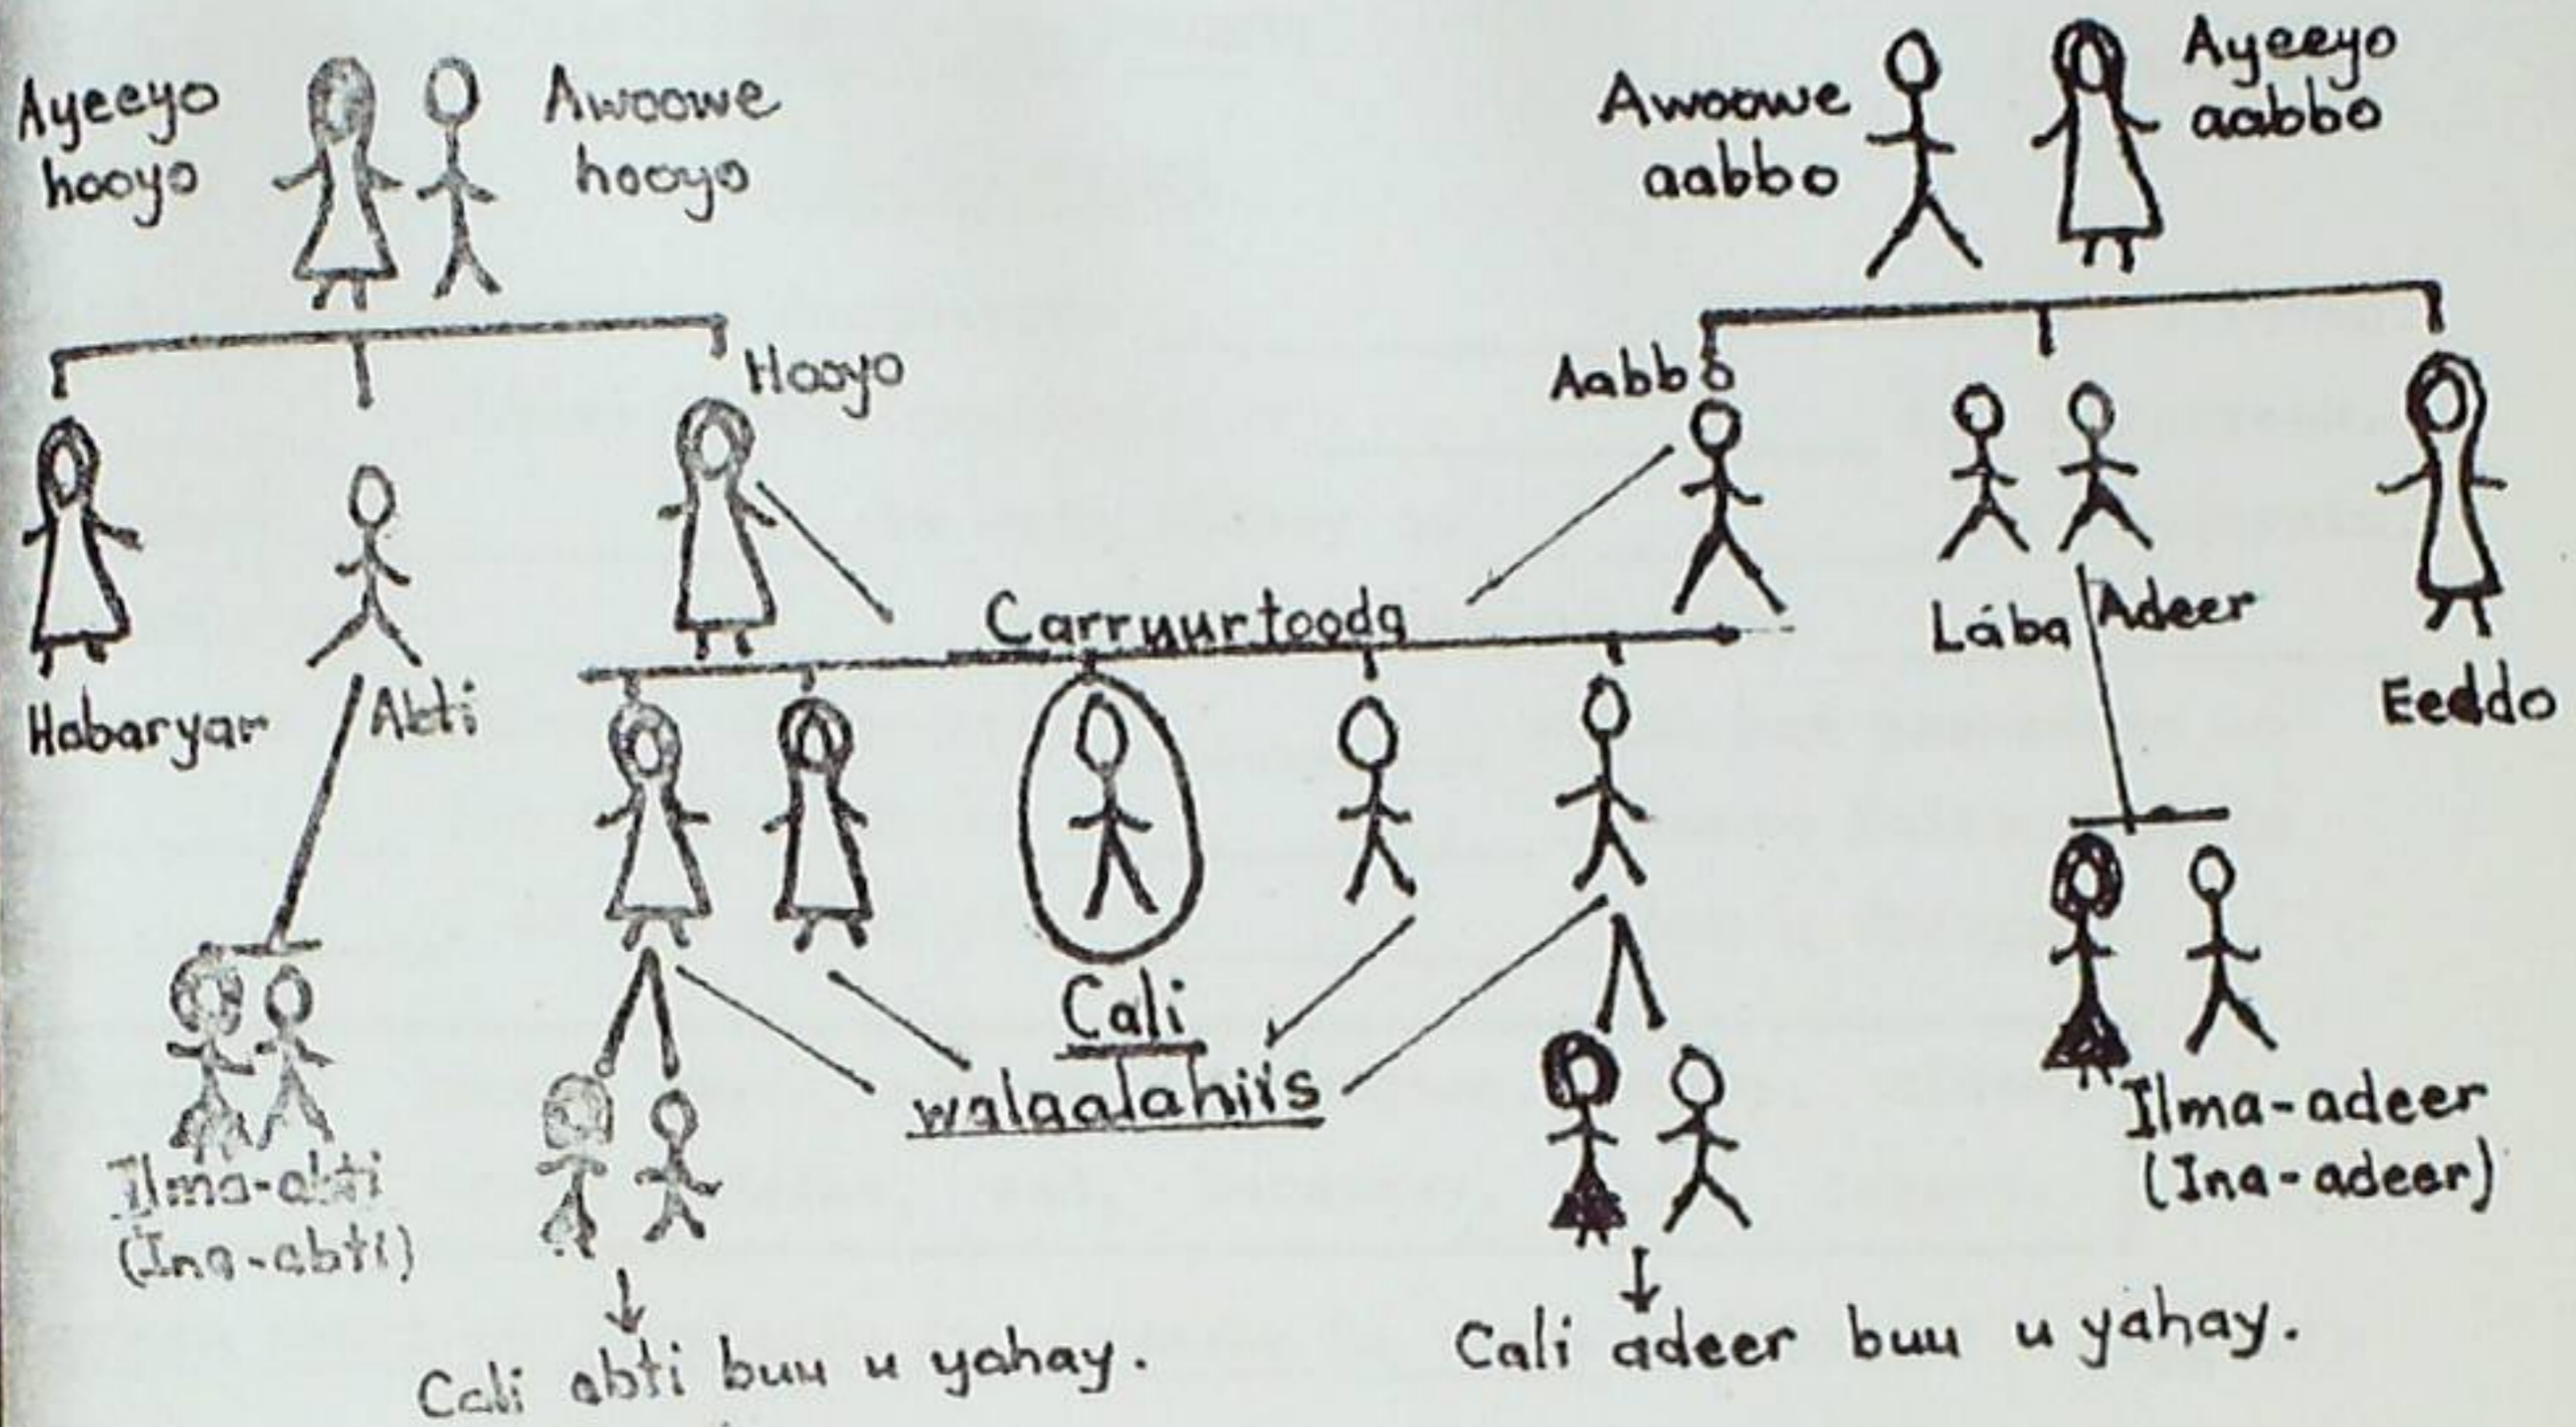 Ayeeyo
hooyo
Awoowe
hooyo
Awoowe
aabbo
Ayeeyo
aabbo
Hooyo
Aabbo
Carruurtooda
Lába Adeer
Eeddo
Habaryar
Abti
Cali
walaalahiis
Ilma-abti
(Ina-abti)
Ilma-adeer
(Ina-adeer)
Cali abti buu u yahay.
Cali adeer buu u yahay.